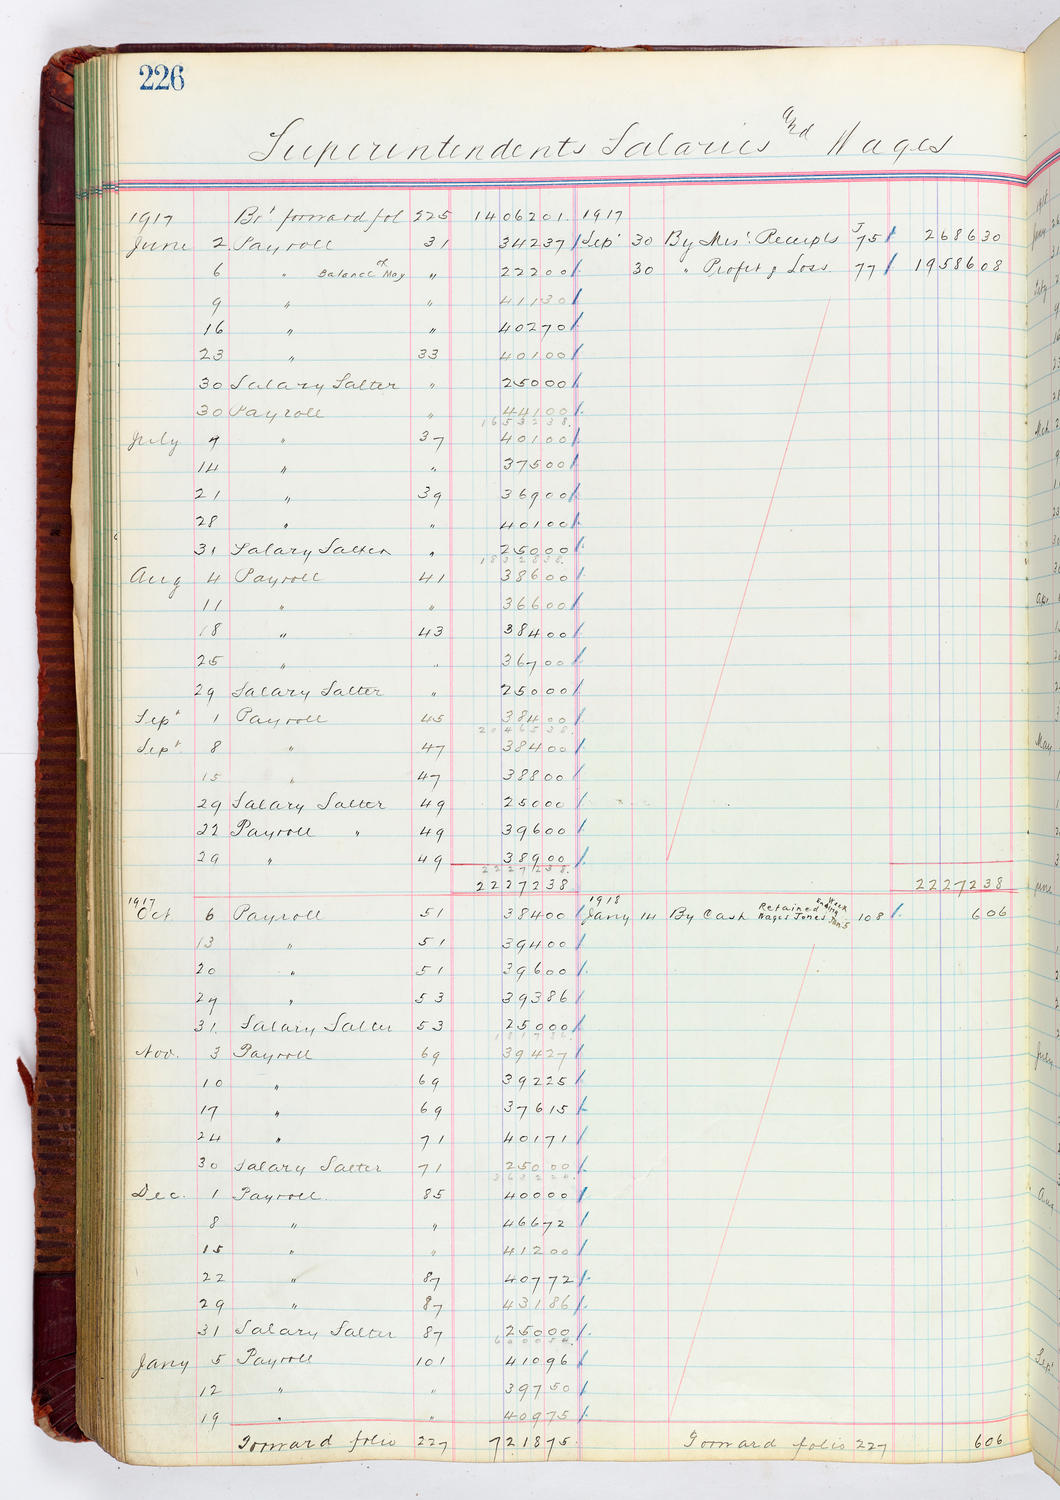 226
Superintendents Salaries and Wages
1917 Brt forward fol 225 1406201. 1917
June 2 Payroll 31 34237 Sept 30 By Mis. Receipts J75 268630
6 " Balance of May " 22200 30 " Profit & Loss 77 1958608
9 " " 41130
16 " " 40270
23 " 33 40100
30 Salary Salter " 25000
30 Payroll " 44100
1653238.
July 7 " 37 40100
14 " " 37500
21 " 39 36900
28 " " 40100
31 Salary Salter " 25000
1832838.
Aug 4 Payroll 41 38600
11 " " 36600
18 " 43 38400
25 " " 36700
29 Salary Salter " 25000
Sept 1 Payroll 45 38400
2046538.
Sept 8 " 47 38400
15 " 47 38800
29 Salary Salter 49 25000
22 Payroll " 49 39600
29 " 49 38900
2227238.
2227238 2227238
1917 1918
Oct 6 Payroll 51 38400 Jany 14 By Cash Retained Wages Jones Week Ending Jan 5 108 606
13 " 51 39400
20 " 51 39600
27 " 53 39386
31. Salary Salter 53 25000
181786.
Nov. 3 Payroll 69 39427
10 " 69 39225
17 " 69 37615
24 " 71 40171
30 Salary Salter 71 25000
363224.
Dec. 1 Payroll. 85 40000
8 " " 46672
15 " " 41200
22 " 87 40772
29 " 87 43186
31 Salary Salter 87 25000
600054.
Jany 5 Payroll 101 41096
12 " " 39750
19 " " 40975
Forward folio 227 721875. Forward folio 227 606